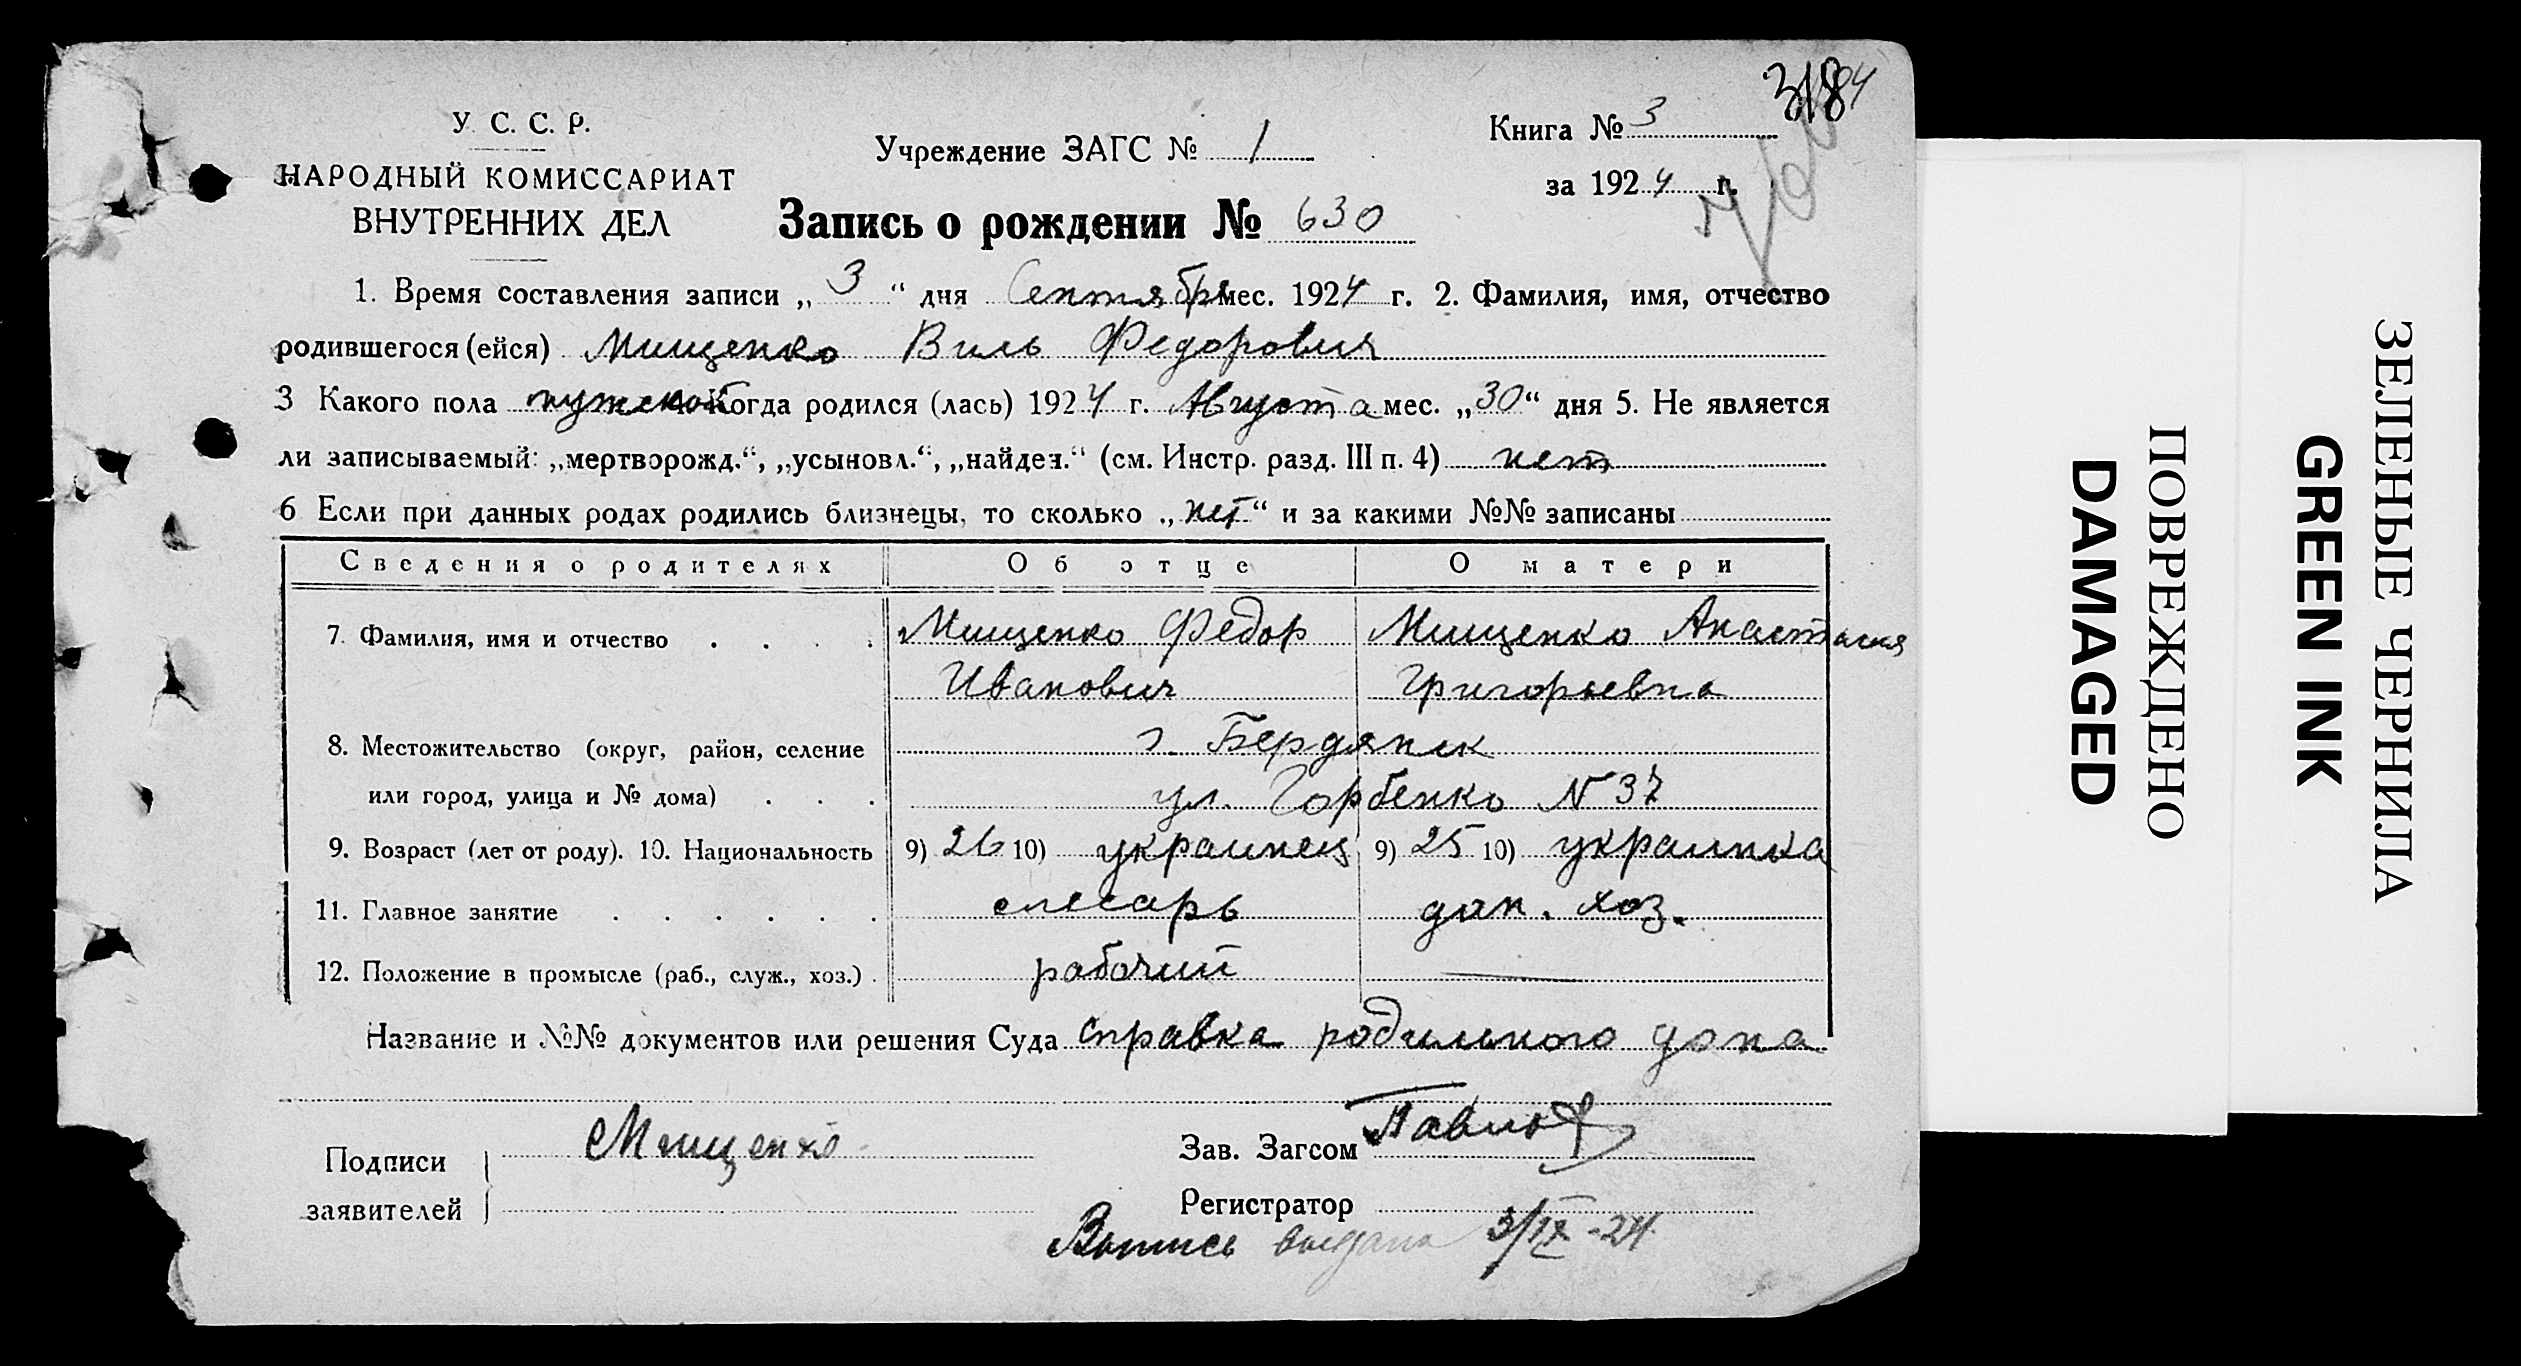 У. С. С. Р.
НАРОДНЫЙ КОМИССАРИАТ
ВНУТРЕННИХ ДЕЛ
Учреждение ЗАГС № 1
Книга № 3
за 1924 г.
Запись о рождении № 630
1. Время составления записи „3“ дня Сентября мес. 1924 г. 2. Фамилия, имя, отчество
родившегося (ейся) Мищенко Виль Федорович
3 Какого пола мужской Когда родился (лась) 1924 г. Августа мес. „30“ дня 5. Не является
ли записываемый: „мертворожд.“, „усыновл.“, „найден.“ (см. Инстр. разд. III п. 4) нет
6 Если при данных родах родились близнецы, то сколько „нет“ и за какими №№ записаны
Сведения о родителях Об отце О матери
7. Фамилия, имя и отчество . . . . Мищенко Федор Мищенко Анастасия
Иванович Григорьевна
8. Местожительство (округ, район, селение г. Бердянск
или город, улица и № дома) . . . ул. Горбенко № 37
9. Возраст (лет от роду). 10. Национальность 9) 26 10) украинец 9) 25 10) украинка
11. Главное занятие . . . . . . слесарь дом. хоз.
12. Положение в промысле (раб., служ., хоз.) . рабочий —
Название и №№ документов или решения Суда справка родильного дома
Подписи Мищенко Зав. Загсом Павлов
заявителей Регистратор
Выпись выдана 3/IX-24
ПОВРЕЖДЕНО
DAMAGED
ЗЕЛЕНЫЕ ЧЕРНИЛА
GREEN INK